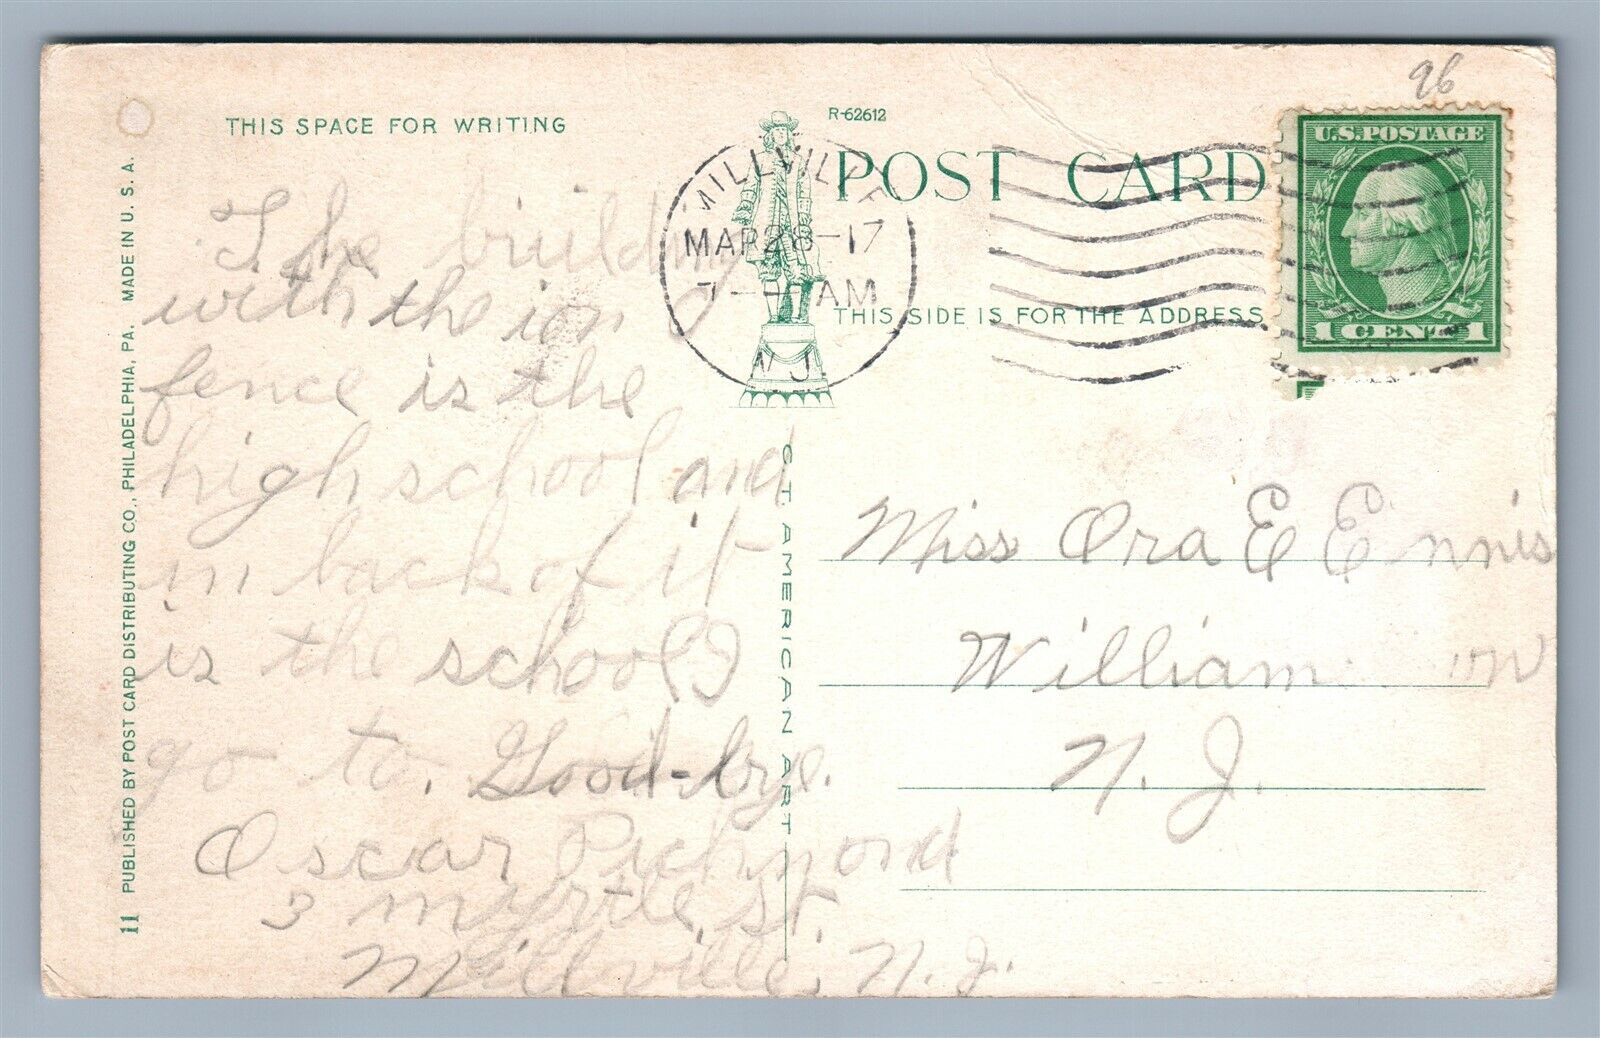 96
THIS SPACE FOR WRITING
R-62612
POST CARD
U.S. POSTAGE
1 CENT 1
MILLVILLE
MAR 28-17
7 - AM
N.J.
THIS SIDE IS FOR THE ADDRESS
The building
with the ion
fence is the
high school and
in back of it
is the school I
go to. Good-bye.
Oscar Richmond
3 Myrtle, st.
Millville, N.J.
Miss Ora E Ennis
William
N.J.
C.T. AMERICAN ART
11 PUBLISHED BY POST CARD DISTRIBUTING CO., PHILADELPHIA, PA. MADE IN U.S.A.